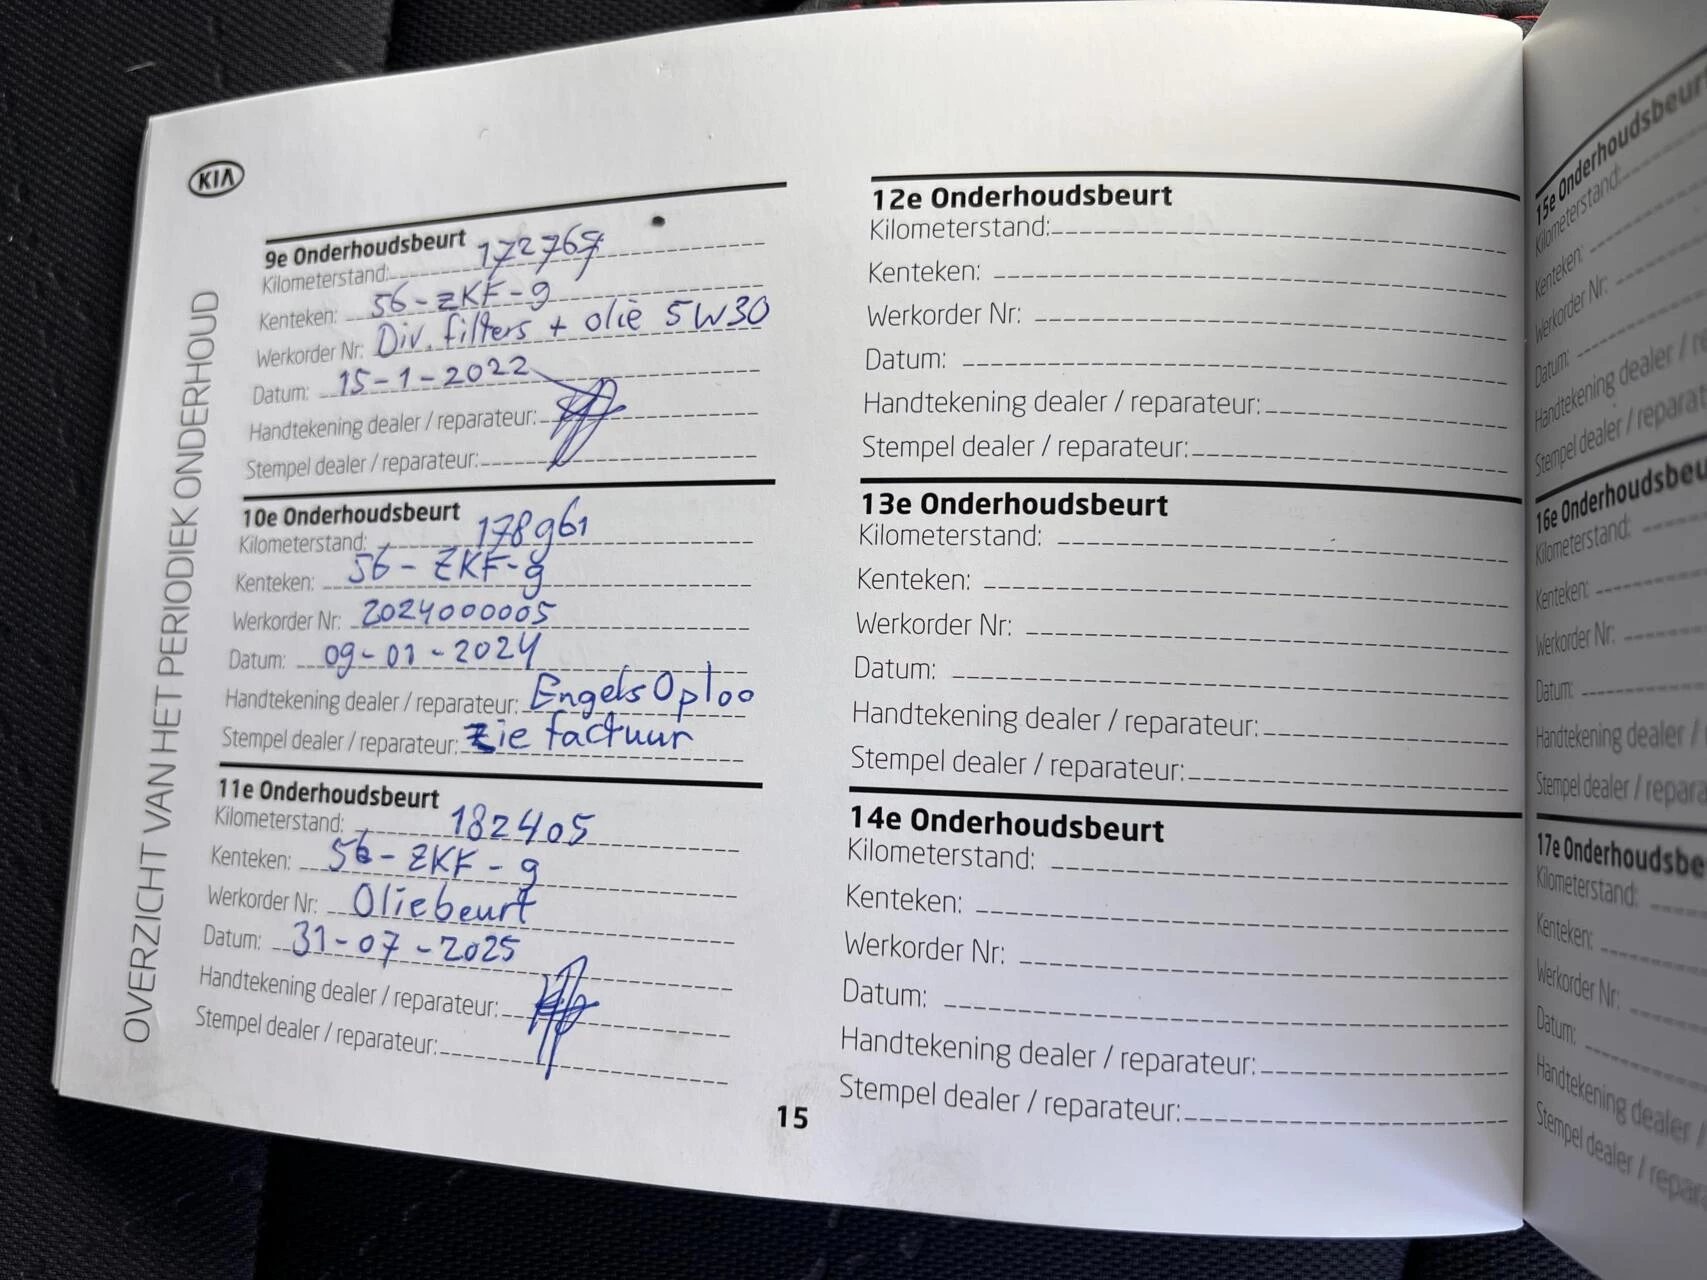 KIA
OVERZICHT VAN HET PERIODIEK ONDERHOUD
9e Onderhoudsbeurt
Kilometerstand: 172767
Kenteken: 56-ZKF-9
Werkorder Nr: Div. filters + olie 5W30
Datum: 15-1-2022
Handtekening dealer / reparateur:
Stempel dealer / reparateur:
10e Onderhoudsbeurt
Kilometerstand: 178961
Kenteken: 56-ZKF-9
Werkorder Nr: 2024000005
Datum: 09-01-2024
Handtekening dealer / reparateur: Engels Oploo
Stempel dealer / reparateur: Zie factuur
11e Onderhoudsbeurt
Kilometerstand: 182405
Kenteken: 56-ZKF-9
Werkorder Nr: Oliebeurt
Datum: 31-07-2025
Handtekening dealer / reparateur:
Stempel dealer / reparateur:
12e Onderhoudsbeurt
Kilometerstand:
Kenteken:
Werkorder Nr:
Datum:
Handtekening dealer / reparateur:
Stempel dealer / reparateur:
13e Onderhoudsbeurt
Kilometerstand:
Kenteken:
Werkorder Nr:
Datum:
Handtekening dealer / reparateur:
Stempel dealer / reparateur:
14e Onderhoudsbeurt
Kilometerstand:
Kenteken:
Werkorder Nr:
Datum:
Handtekening dealer / reparateur:
Stempel dealer / reparateur:
15
15e Onderhoudsbeurt
Kilometerstand:
Kenteken:
Werkorder Nr:
Datum:
Handtekening dealer /
Stempel dealer /
16e
Kilometerstand:
Kenteken:
Werkorder Nr:
Datum:
Handtekening dealer /
Stempel dealer /
17e
Kilometerstand:
Kenteken:
Werkorder Nr:
Datum:
Handtekening dealer /
Stempel dealer /